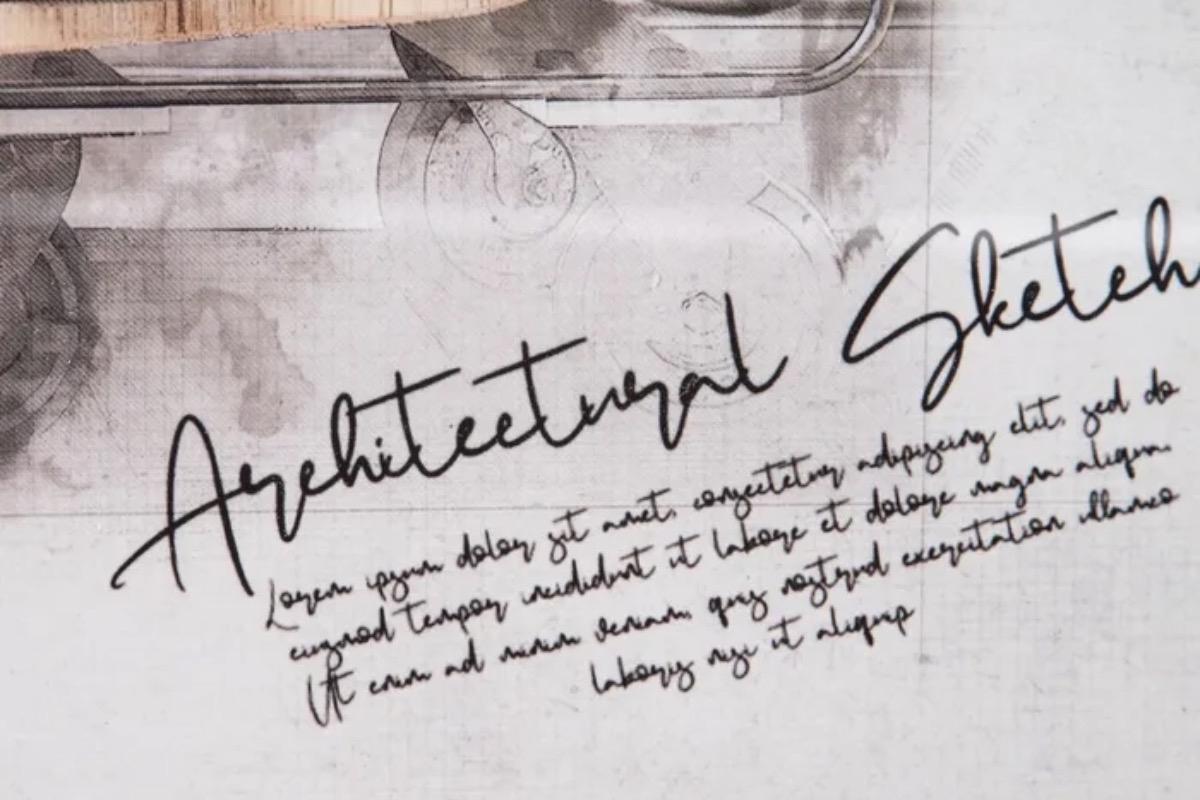 Architectural Sketch
Lorem ipsum dolor sit amet, consectetur adipiscing elit, sed do
eiusmod tempor incididunt ut labore et dolore magna aliqua.
Ut enim ad minim veniam, quis nostrud exercitation ullamco
laboris nisi ut aliquip